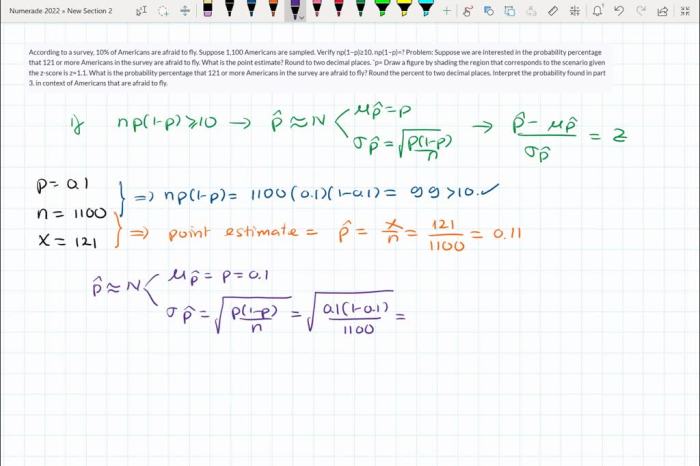 Numerade 2022 » New Section 2
According to a survey, 10% of Americans are afraid to fly. Suppose 1,100 Americans are sampled. Verify np(1-p)≥10. np(1-p)=? Problem: Suppose we are interested in the probability percentage
that 121 or more Americans in the survey are afraid to fly. What is the point estimate? Round to two decimal places. ˆp= Draw a figure by shading the region that corresponds to the scenario given
the z-score is z=1.1. What is the probability percentage that 121 or more Americans in the survey are afraid to fly? Round the percent to two decimal places. Interpret the probability found in part
3. in context of Americans that are afraid to fly.
if np(1-p)≥10 → p̂ ≈ N < μp̂ = p
σp̂ = √(p(1-p)/n) → (p̂ - μp̂)/σp̂ = z
p = 0.1
n = 1100 } => np(1-p) = 1100(0.1)(1-0.1) = 99 > 10 ✓
x = 121 } => point estimate = p̂ = x/n = 121/1100 = 0.11
p̂ ≈ N < μp̂ = p = 0.1
σp̂ = √(p(1-p)/n) = √(0.1(1-0.1)/1100) =